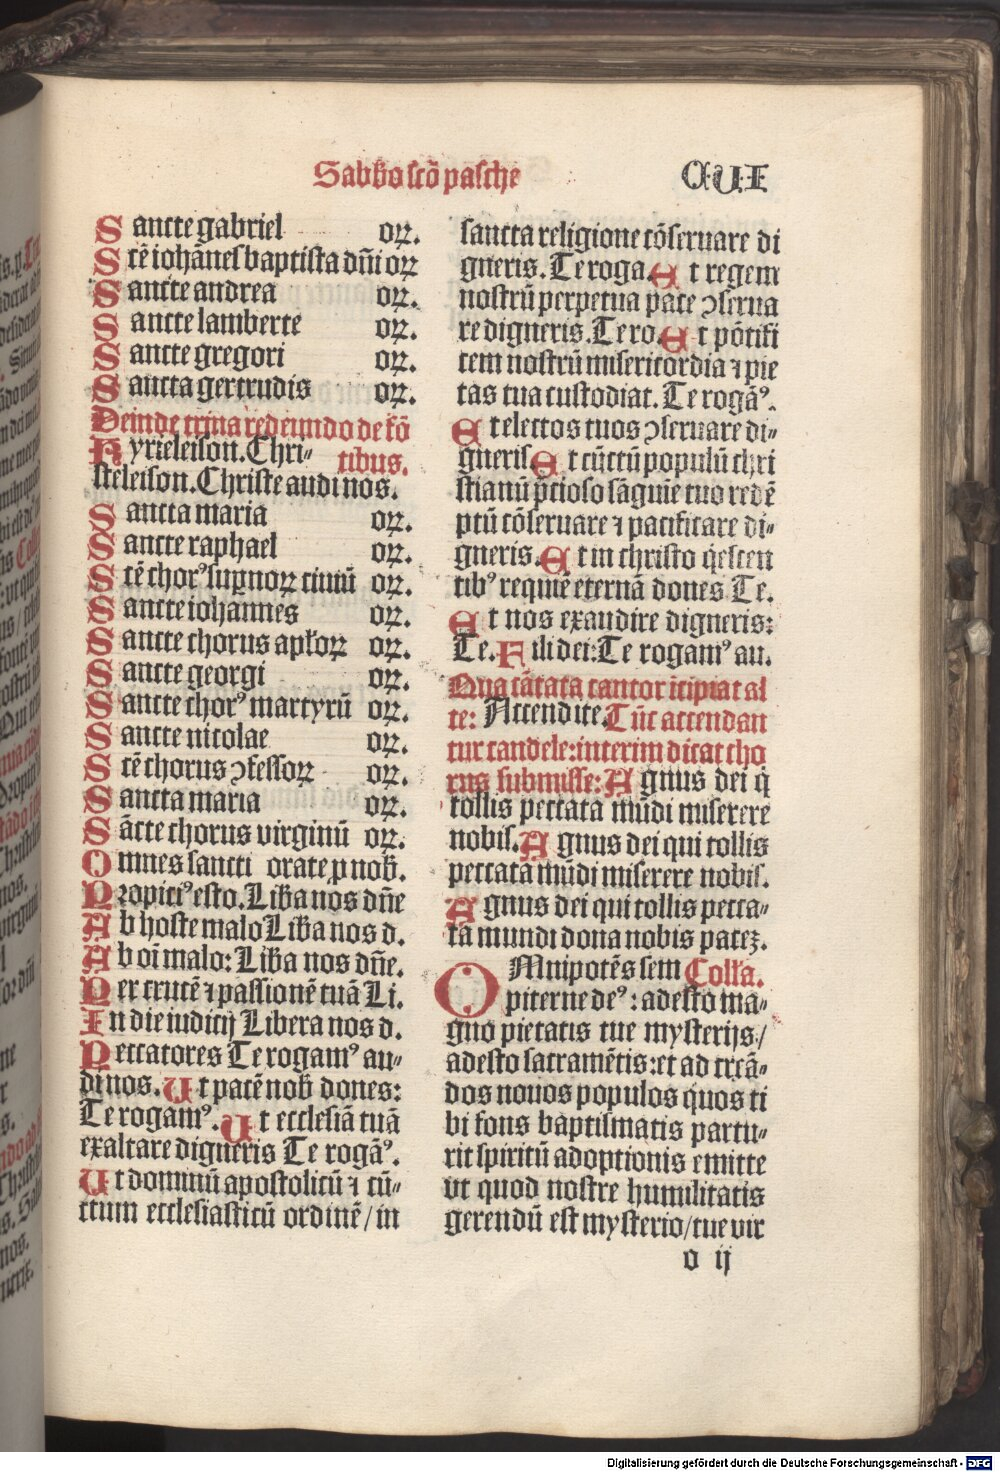 Sabbo scō pasche
C.U.I
Sancte gabriel orꝝ.
Scē iohānes baptista dn̄i orꝝ
Sancte andrea orꝝ.
Sancte lamberte orꝝ.
Sancte gregori orꝝ.
Sancta gertrudis orꝝ.
Deinde trina redeundo de fō
Kyrieleison. Chri- tibus.
steleison. Christe audi nos.
Sancta maria orꝝ.
Sancte raphael orꝝ.
Scē chorꝰ supnoꝝ ciuiū orꝝ.
Sancte iohannes orꝝ.
Sancte chorus apłoꝝ orꝝ.
Sancte georgi orꝝ.
Sancte chorꝰ martyrū orꝝ.
Sancte nicolae orꝝ.
Scē chorus ɔfessoꝝ orꝝ.
Sancta maria orꝝ.
Sācte chorus virginū orꝝ.
Omnes sancti orate ꝓ nob̄.
Propiciꝰ esto. Lib̄a nos dn̄e
Ab hoste malo Lib̄a nos d.
Ab oī malo: Lib̄a nos dn̄e.
Per crucē ⁊ passionē tuā Li.
In die iudicij Libera nos d.
Peccatores Te rogamꝰ au-
di nos. Ut pacē nob̄ dones:
Te rogamꝰ. Ut ecclesiā tuā
exaltare digneris Te rogāꝰ.
Ut domnū apostolicū ⁊ cū-
ctum ecclesiasticū ordinē / in
sancta religione cōseruare di
gneris. Te roga. Et regem
nostrū perpetua pace ɔserua
re digneris. Te ro. Et pōtifi
cem nostrū misericordia ⁊ pie
tas tua custodiat. Te rogāꝰ.
Et electos tuos ɔseruare di-
gneris. Et cūctū populū chri
stianū p̄cioso sāguie tuo redē
ptū cōseruare ⁊ pacificare di-
gneris. Et in christo q̇escen
tibꝰ requiē eternā dones Te.
Et nos exaudire digneris:
Te. Fili dei: Te rogamꝰ au.
Qua cātata cantor īcipiat al
te: Accendite. Tūc accendan
tur candele: interim dicat cho
rus submisse: Agnus dei q̇
tollis peccata mūdi miserere
nobis. Agnus dei qui tollis
peccata mūdi miserere nobis.
Agnus dei qui tollis pecca-
ta mundi dona nobis pacez.
OMnipotēs sem Colła.
piterne deꝰ: adesto ma-
gno pietatis tue mysterijs /
adesto sacramētis: et ad crcā-
dos nouos populos quos ti
bi fons baptismatis partu-
rit spiritū adoptionis emitte
vt quod nostre humilitatis
gerendū est mysterio / tue vir
o ij
Digitalisierung gefördert durch die Deutsche Forschungsgemeinschaft - DFG